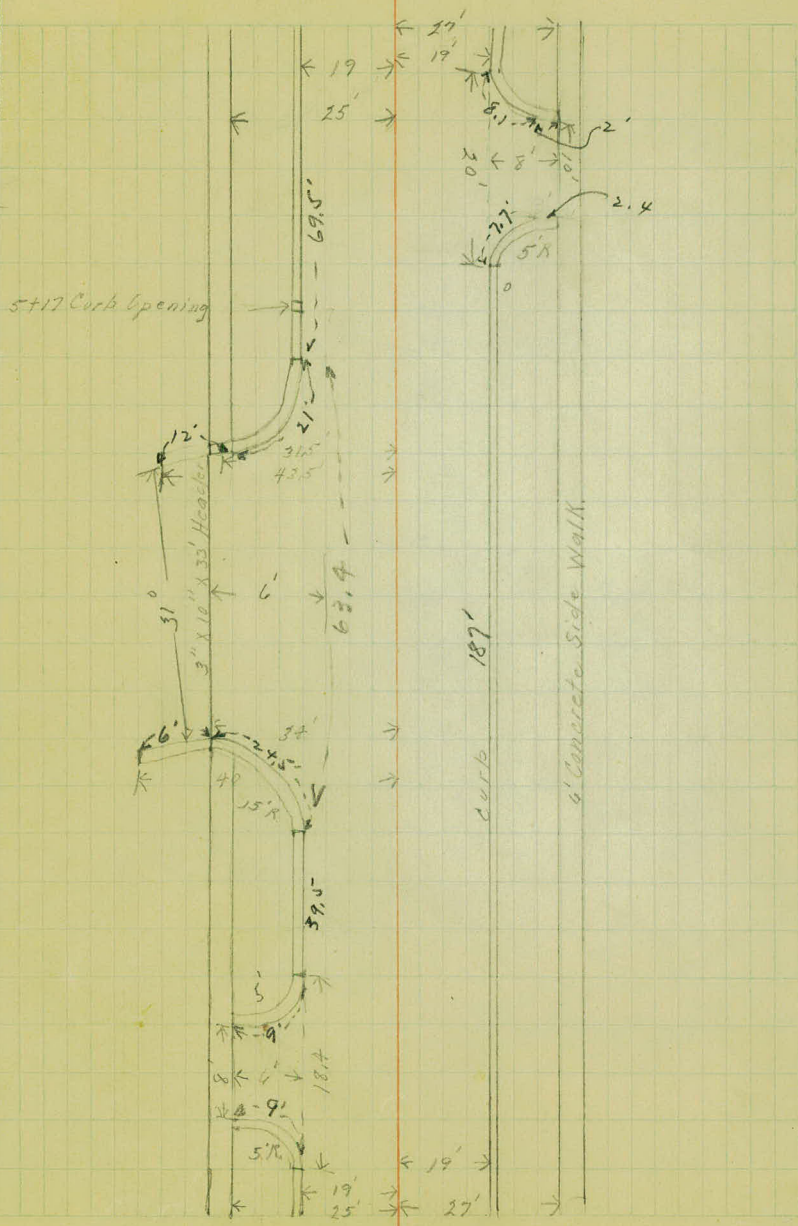 27'
19
19'
25'
8.1
2'
20'
8'
10'
69.5'
2.4
7.7
5'R
0
5+17 Curb Opening
21'
12'
31.5'
43.5
3" X 10" X 33' Header
31°
6'
63.4
187'
Curb
4' Concrete Side Walk
6'
34'
24.5
40
15'R
39.5
5'
9'
8'
6'
18.4
9'
5'R
19'
19'
25'
27'